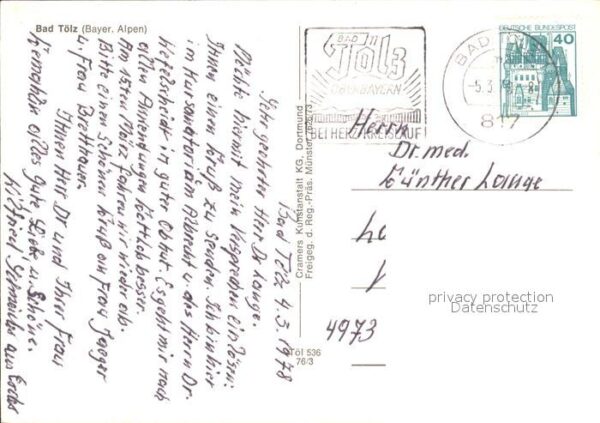 Bad Tölz (Bayer. Alpen)
Bad Tölz 4.3.1978
Sehr geehrter Herr Dr. Lange.
Möchte hiermit mein Versprechen einlösen
Ihnen einen Gruß zu senden. Ich bin hier
im Kursanatorium Albrecht u. das Herrn Dr.
in guter Obhut. Es geht mir nach
allen Anwendungen besser.
Am 15ten März fahren wir wieder ab.
Bitte einen Schönen Gruß an Frau Jaeger
u. Frau
Ihnen Herr Dr und Ihrer Frau
Gemahlin alles Gute Liebe u. Schöne.
aus
Cramers Kunstanstalt KG, Dortmund
Freigeg. d. Reg.-Präs. Münster
Töl 536
76/3
BAD
TÖLZ
OBERBAYERN
BEI HERZ-KREISLAUF
BAD
817
DEUTSCHE BUNDESPOST
40
Herrn
Dr. med.
Günther Lange
4973
privacy protection
Datenschutz